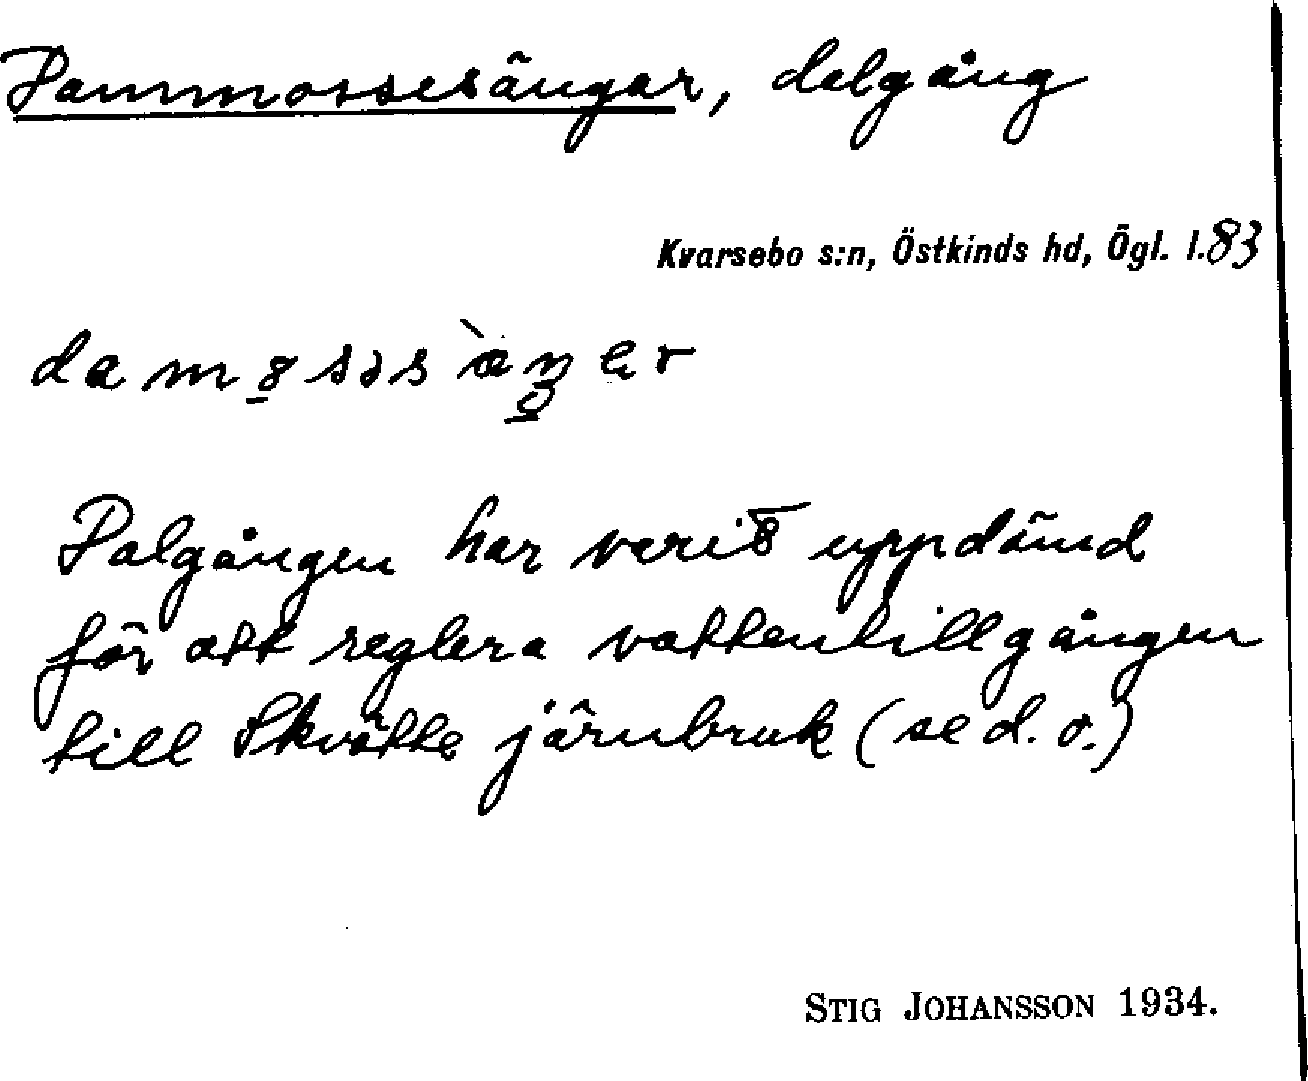 Dammossesängar, dalgång
Kvarsebo s:n, Östkinds hd, Ögl. l.83
Dalgången har varit uppdämd
för att reglera vattentillgången
till Skvätta järnbruk (se d. o.)
STIG JOHANSSON 1934.